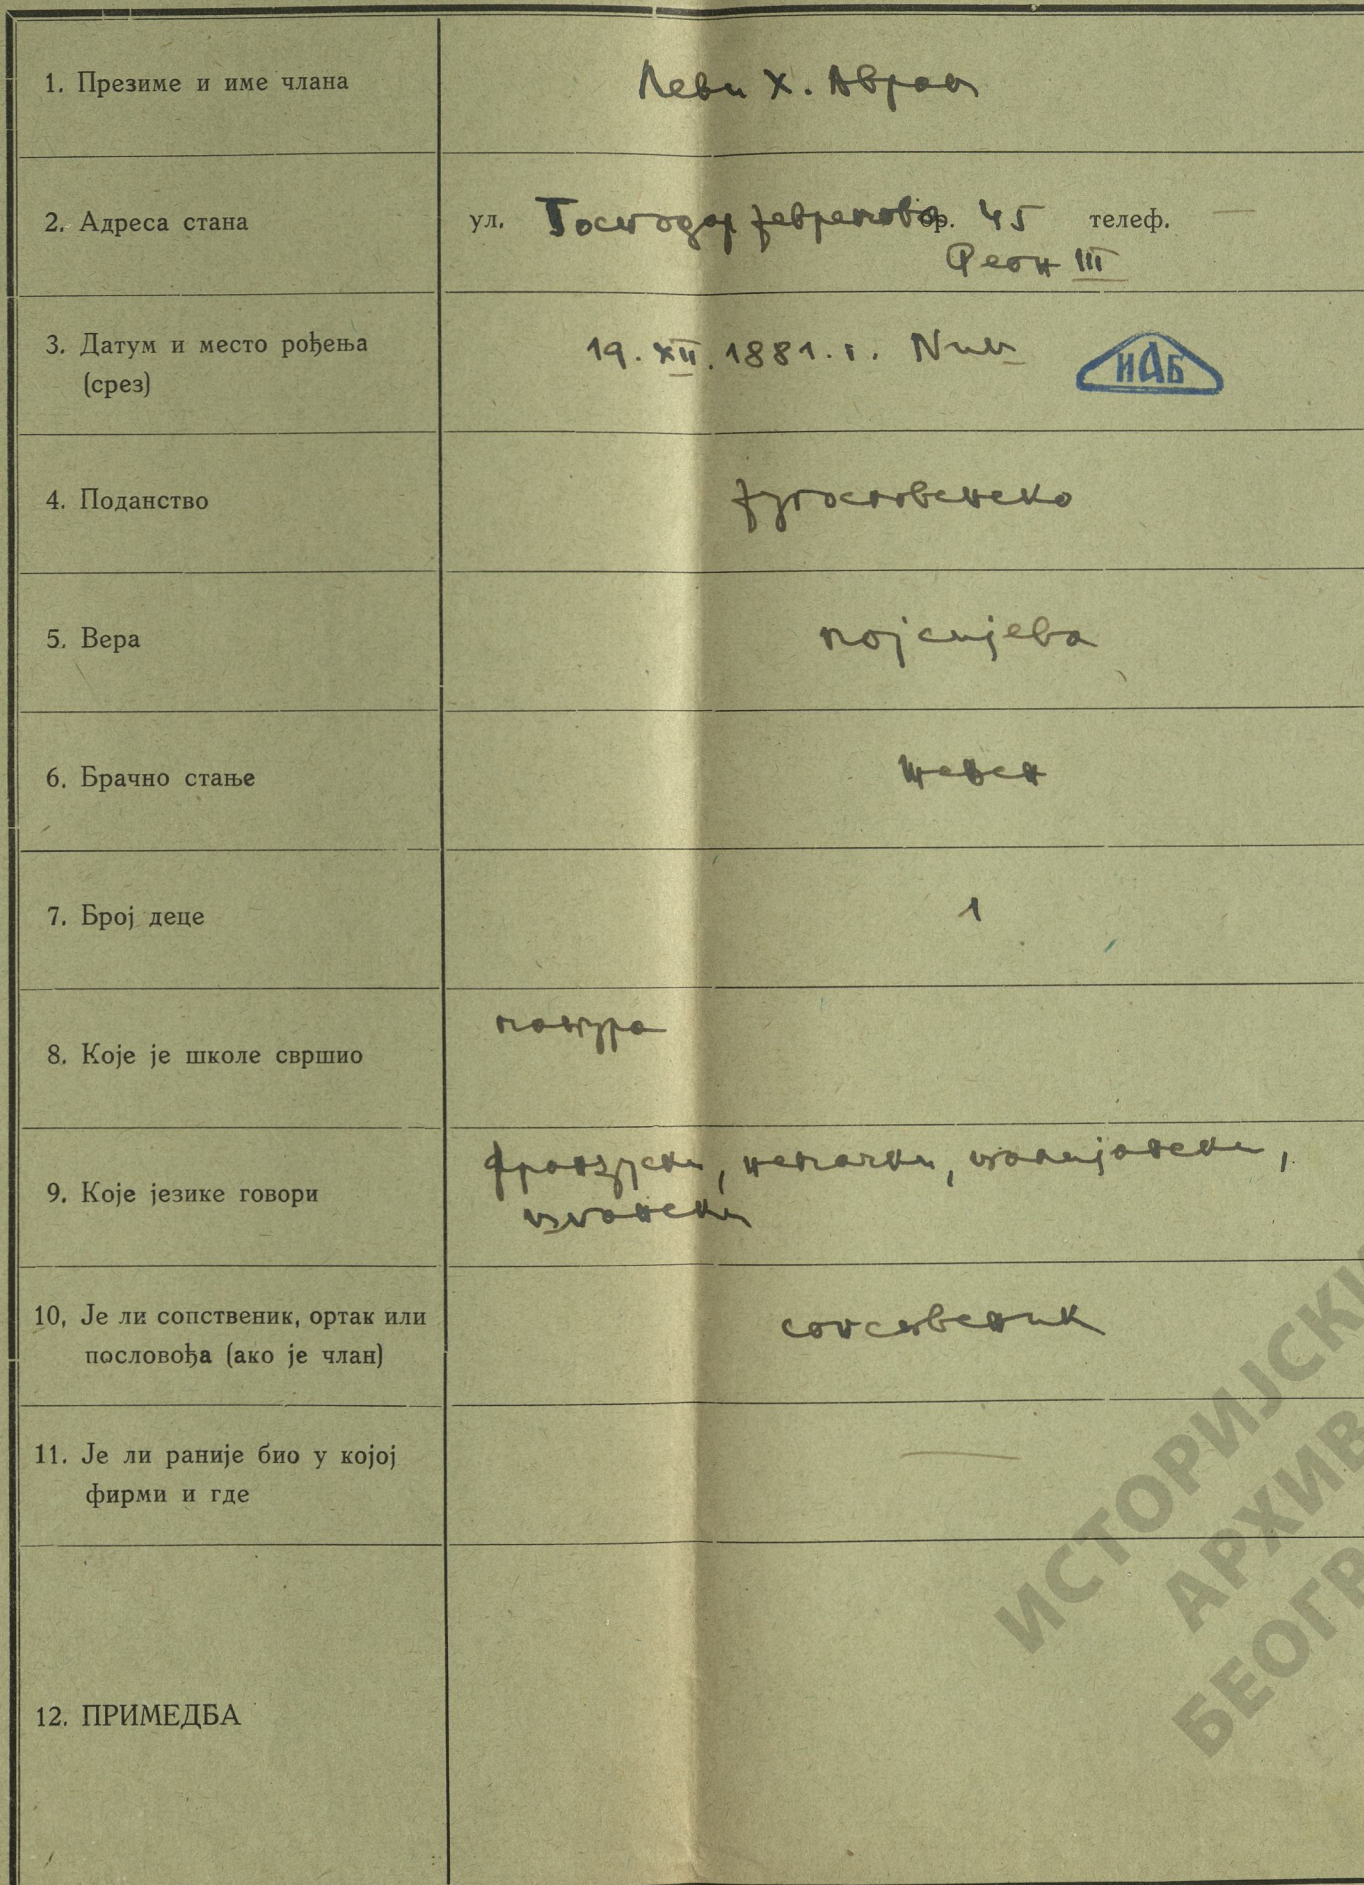 1. Презиме и име члана
Леви Х. Аврам
2. Адреса стана
ул. Господар Јевремова бр. 45 телеф. —
Реон III
3. Датум и место рођења
(срез)
19. XII. 1881. г. Ниш
ИАБ
4. Поданство
југословенско
5. Вера
мојсијева
6. Брачно стање
жењен
7. Број деце
1
8. Које је школе свршио
матура
9. Које језике говори
француски, немачки, италијански,
шпански
10, Је ли сопственик, ортак или
пословођа (ако је члан)
сопственик
11. Је ли раније био у којој
фирми и где
—
12. ПРИМЕДБА
ИСТОРИЈСКИ
АРХИВ
БЕОГР